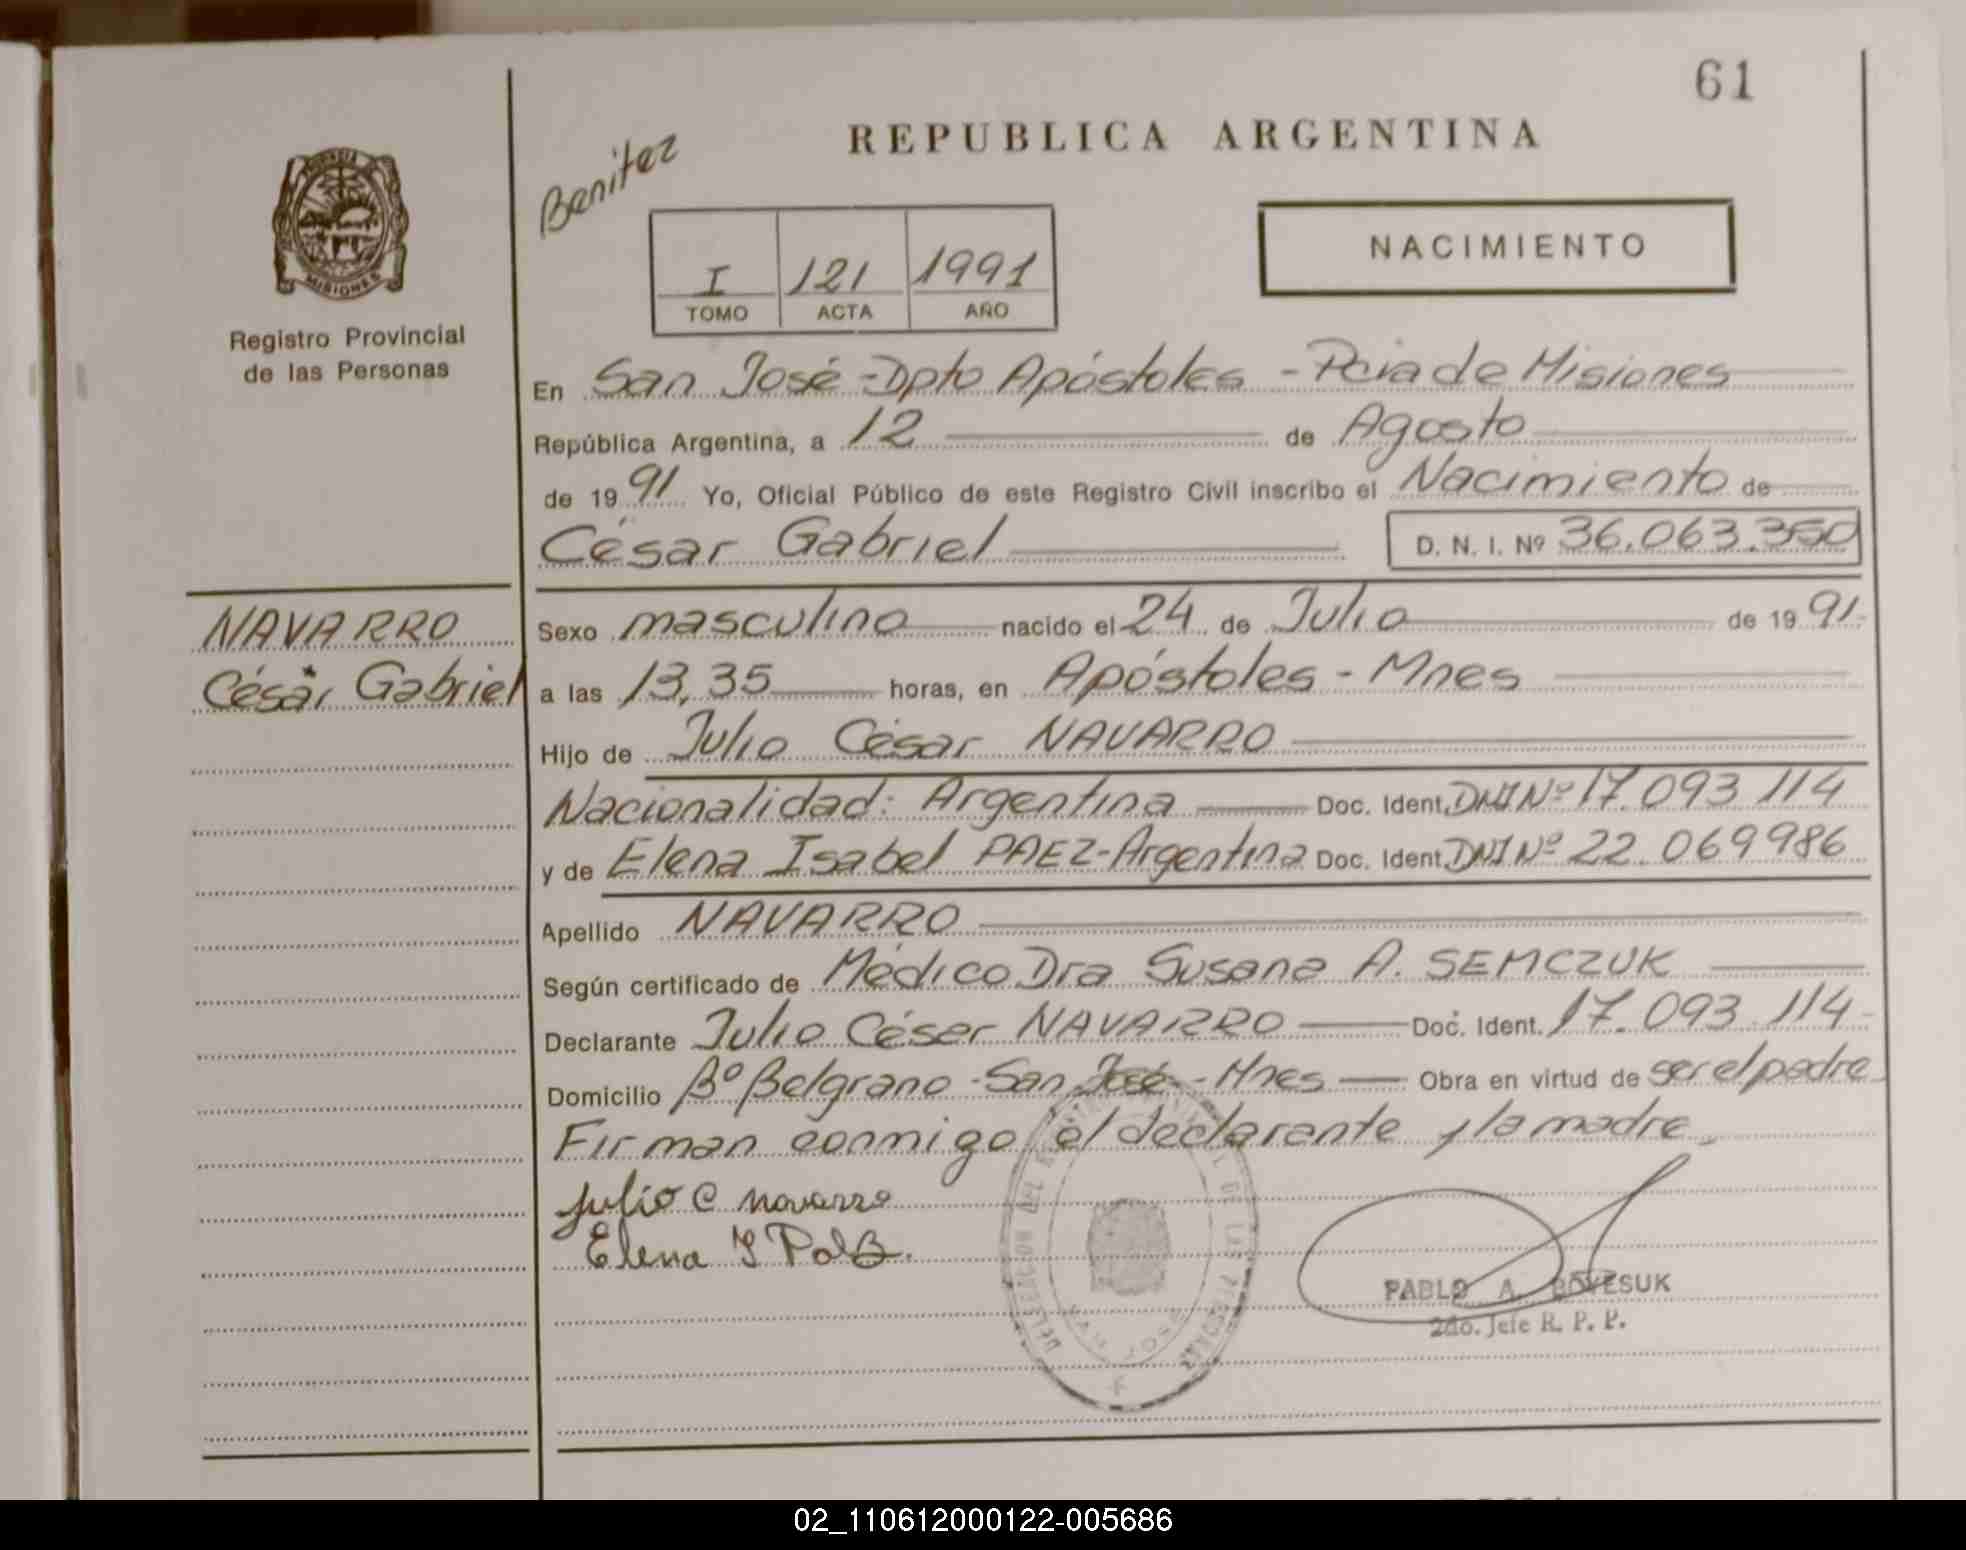 61
REPUBLICA ARGENTINA
Benitez
MISIONES
Registro Provincial
de las Personas
I 121 1991
TOMO ACTA AÑO
NACIMIENTO
En San José - Dpto Apóstoles - Pcia de Misiones
República Argentina, a 12 de Agosto
de 1991 Yo, Oficial Público de este Registro Civil inscribo el Nacimiento de
César Gabriel D. N. I. Nº 36.063.350
NAVARRO
César Gabriel
Sexo masculino nacido el 24 de Julio de 1991.
a las 13,35 horas, en Apóstoles - Mnes
Hijo de Julio César NAVARRO
Nacionalidad: Argentina Doc. Ident. DNI Nº 17.093 114
y de Elena Isabel PAEZ - Argentina Doc. Ident. DNI Nº 22.069986
Apellido NAVARRO
Según certificado de Médico Dra Susana A. SEMCZUK
Declarante Julio César NAVARRO Doc. Ident. 17.093.114
Domicilio Bº Belgrano - San José - Mnes Obra en virtud de ser el padre
Firman conmigo el declarante y la madre.
Julio C Navarro
Elena I
PABLO A. BOYESUK
2do. Jefe R. P. P.
02_110612000122-005686